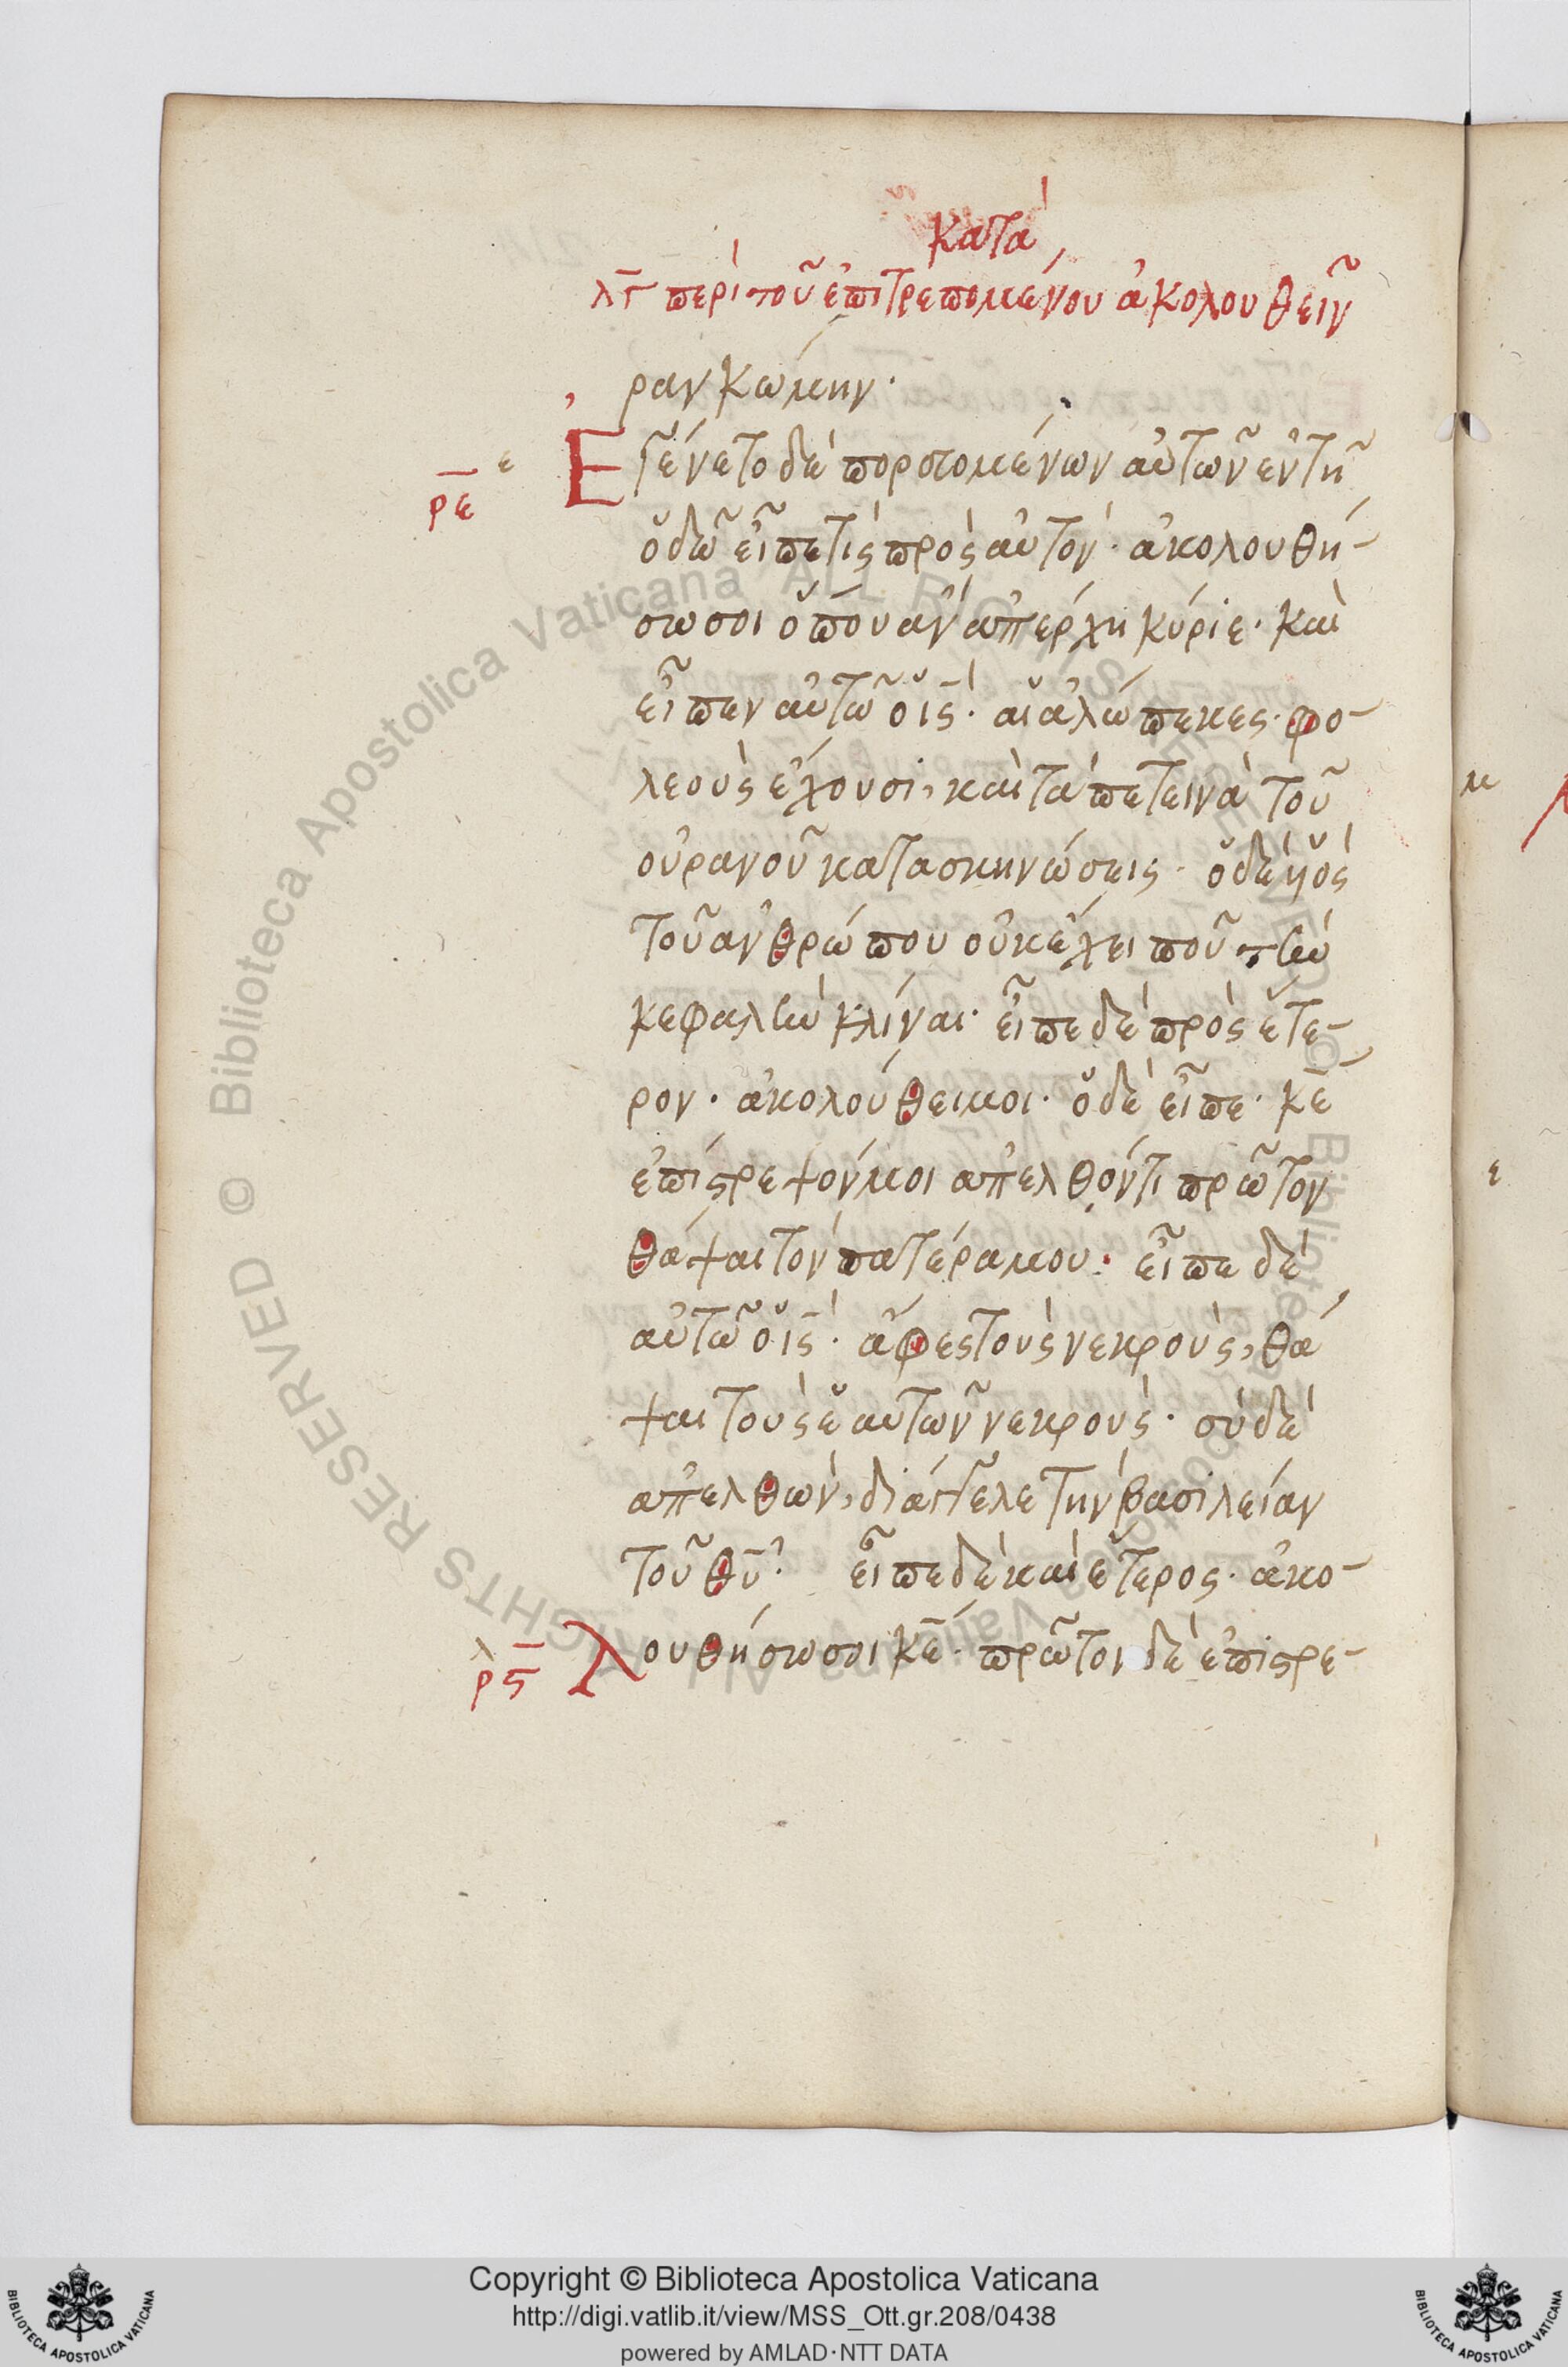 κατὰ
λγ περὶ τοῦ ἐπιτρεπομένου ἀκολουθεῖν
ραν κώμην·
Ἐγένετο δὲ πορευομένων αὐτῶν ἐν τῆ
ρε ε
ὁδῶ εἶπε τὶς πρὸς αὐτόν· ἀκολουθή-
σω σοι ὅπου ἂν ἀπέρχη κύριε· καὶ
εἶπεν αὐτῶ ὁ ις· αἱ ἀλώπεκες· φο-
λεοὺς ἔχουσι, καὶ τὰ πετεινὰ τοῦ
οὐρανοῦ κατασκηνώσεις· ὁ δὲ υἱὸς
τοῦ ἀνθρώπου οὐκ ἔχει ποῦ τὴν
κεφαλὴν κλίναι· εἶπε δὲ πρὸς ἕτε-
ρον· ἀκολούθει μοι· ὁ δὲ εἶπε· κε
ἐπίστρεψόν μοι ἀπελθόντι πρῶτον
θάψαι τὸν πατέρα μου· εἶπε δὲ
αὐτῶ ὁ ις· ἄφες τοὺς νεκροὺς, θά
ψαι τοὺς ἑαυτῶν νεκρούς· σὺ δὲ
ἀπελθών, διάγγελε τὴν βασιλείαν
τοῦ θυ· εἶπε δὲ καὶ ἕτερος· ἀκο-
λουθήσω σοι κε· πρῶτον δὲ ἐπίστρε-
λ
ρς
μ
ε
© Biblioteca Apostolica Vaticana ALL RIGHTS RESERVED
© Biblioteca Apostolica Vaticana ALL RIGHTS RESERVED
Copyright © Biblioteca Apostolica Vaticana
http://digi.vatlib.it/view/MSS_Ott.gr.208/0438
powered by AMLAD·NTT DATA
BIBLIOTECA APOSTOLICA VATICANA
BIBLIOTECA APOSTOLICA VATICANA